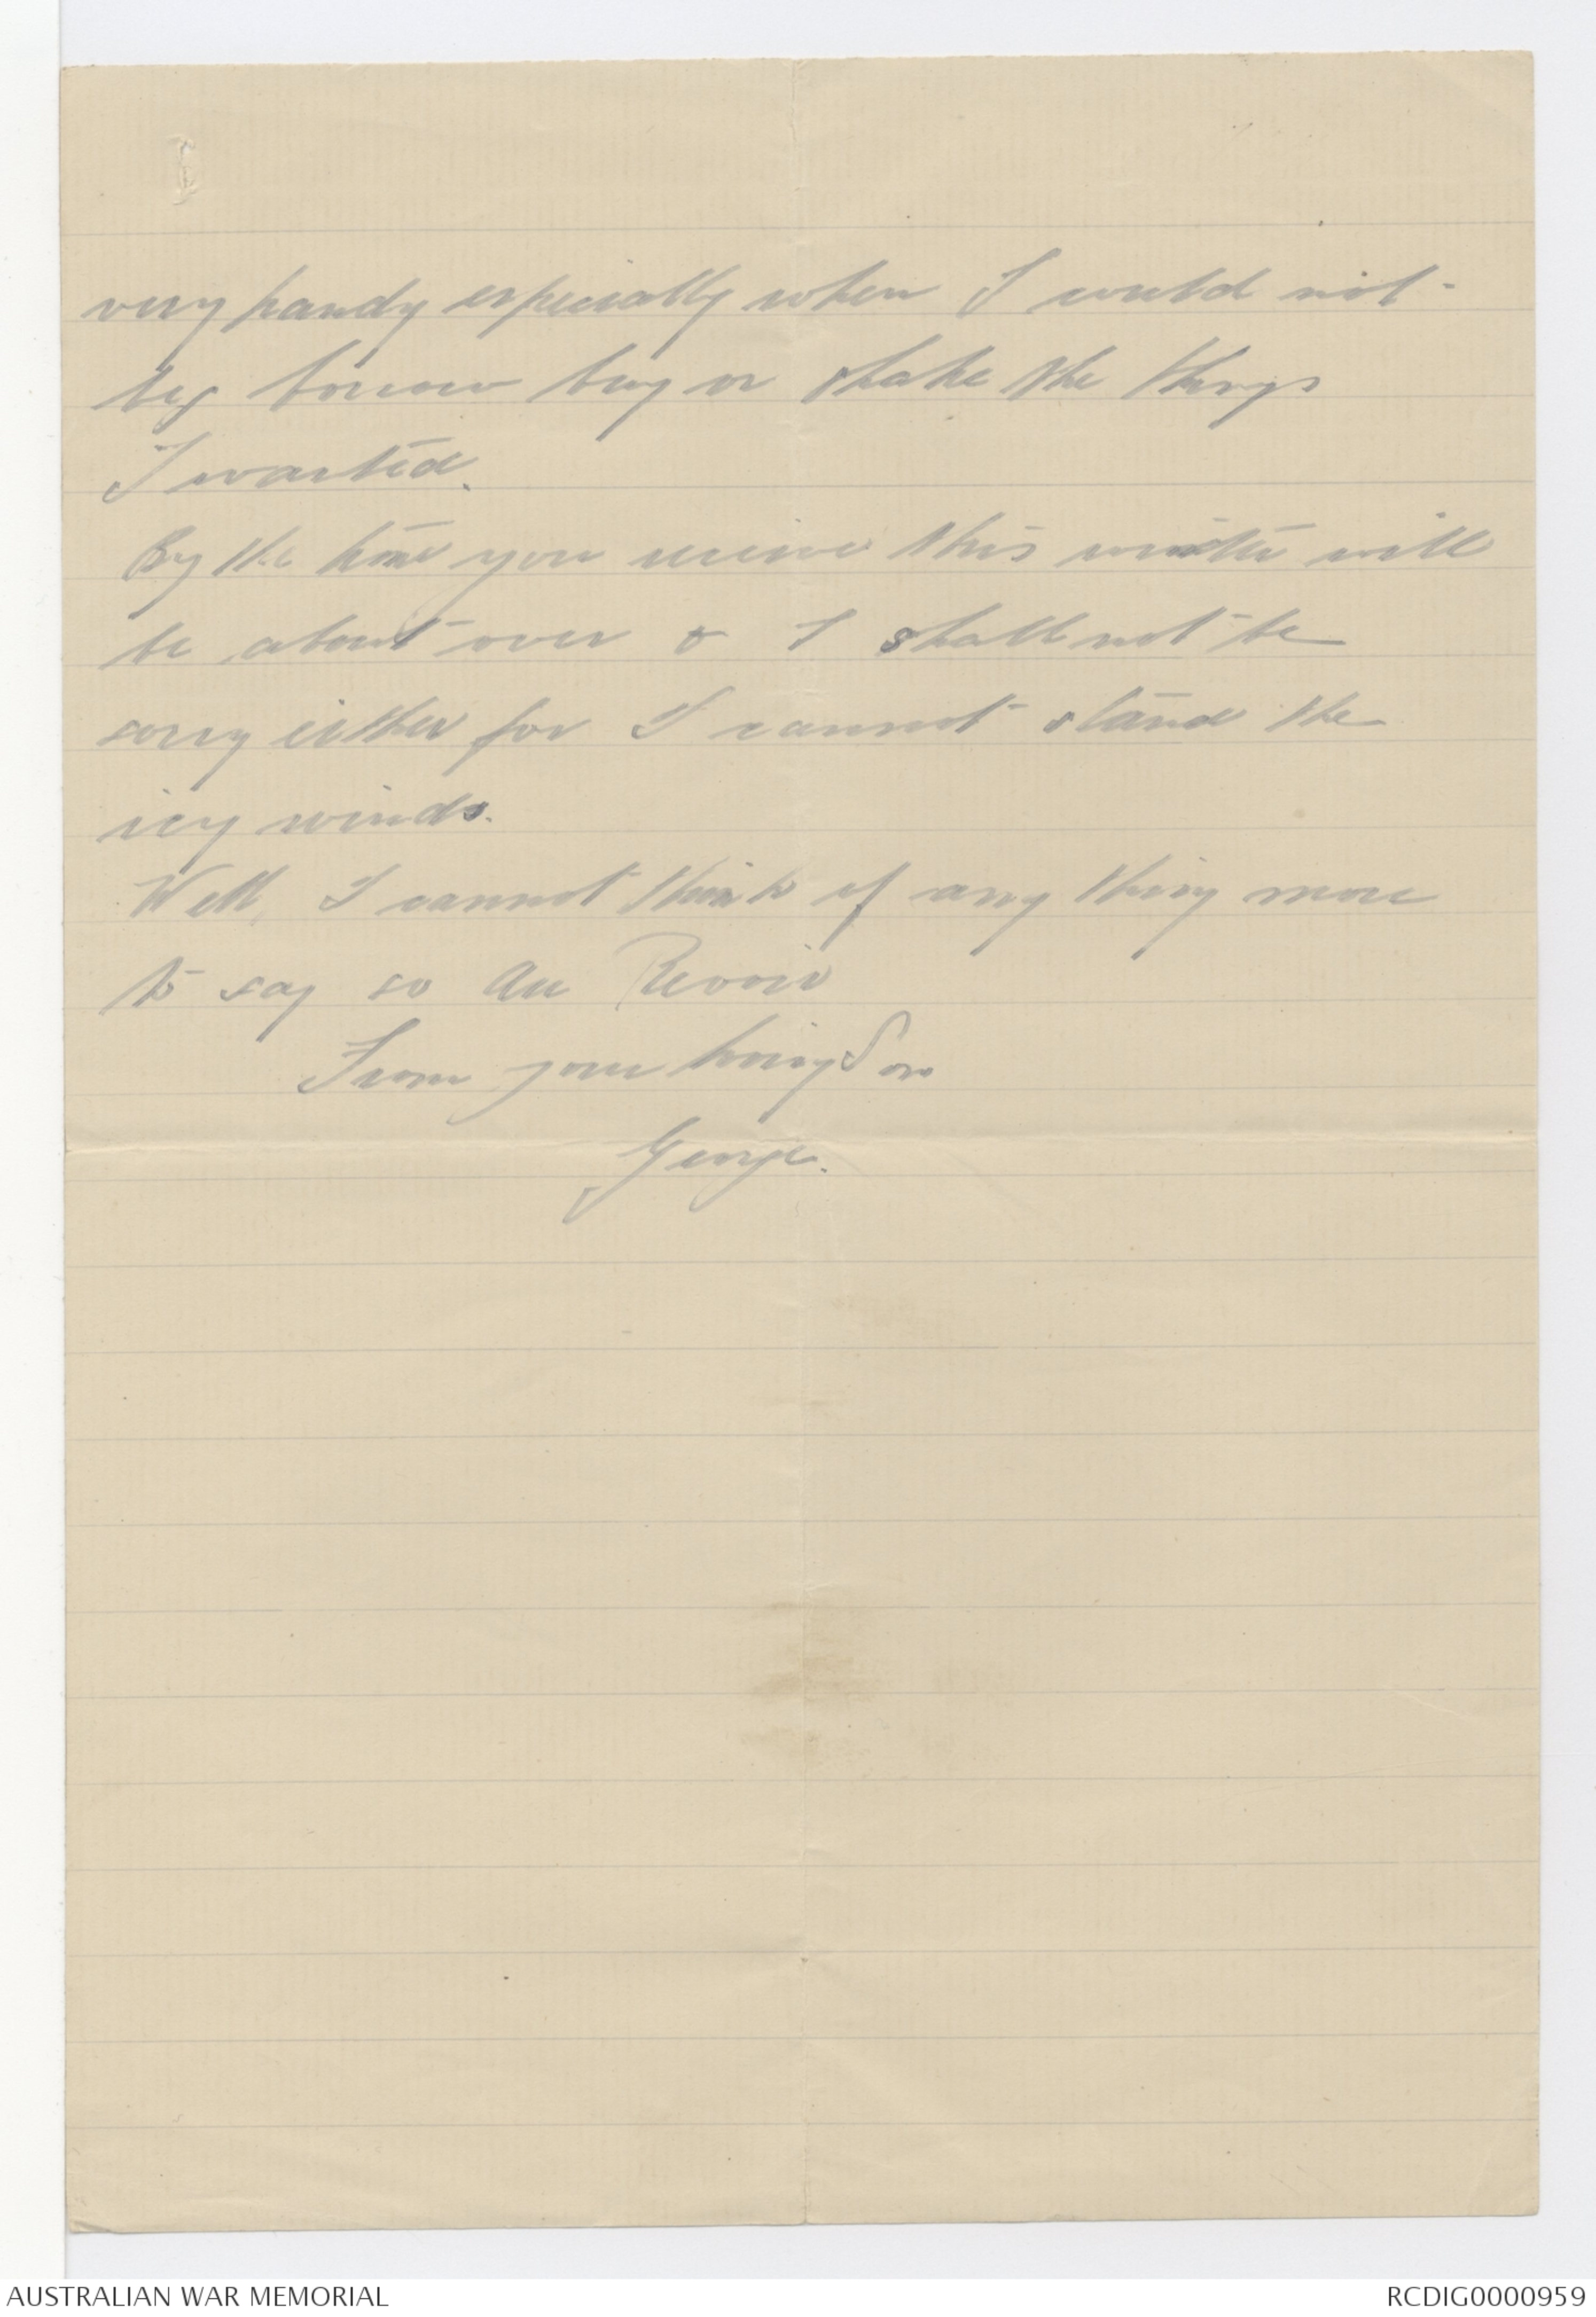 very handy especially when I could not
beg borrow buy or shake the things
I wanted.
By the time you receive this winter will
be about over & I shall not be
sorry either for I cannot stand the
icy winds.
Well, I cannot think of any thing more
to say so Au Revoir
From your loving Son
George.
AUSTRALIAN WAR MEMORIAL
RCDIG0000959